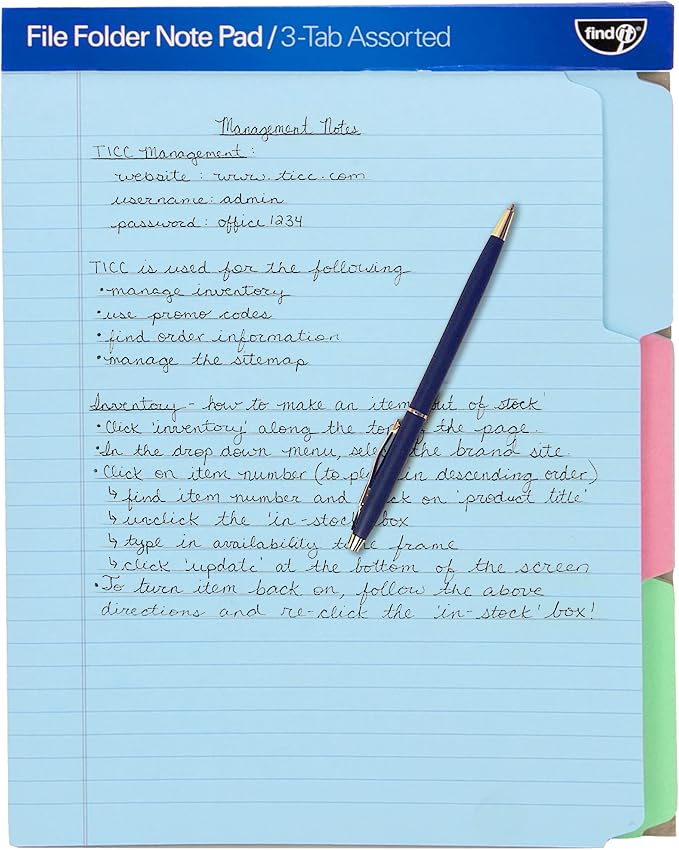 File Folder Note Pad / 3-Tab Assorted
find it®
Management Notes
TICC Management:
website: www.ticc.com
username: admin
password: office1234
TICC is used for the following
• manage inventory
• use promo codes
• find order information
• manage the sitemap
Inventory - how to make an item out of stock
• Click 'inventory' along the top of the page.
• In the drop down menu, select the brand site.
• Click on item number (to pl in descending order)
↳ find item number and click on 'product title'
↳ unclick the 'in-stock' box
↳ type in availability time frame
↳ click 'update' at the bottom of the screen
• To turn item back on, follow the above
directions and re-click the 'in-stock' box!